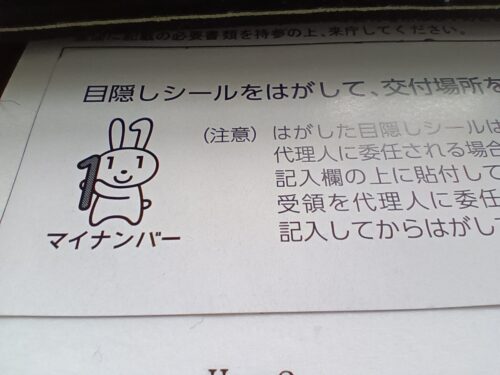 に記載の必要書類を持参の上、来庁してください。
目隠しシールをはがして、交付場所を
(注意) はがした目隠しシールは
代理人に委任される場合
記入欄の上に貼付して
受領を代理人に委任
記入してからはがし
マイナンバー